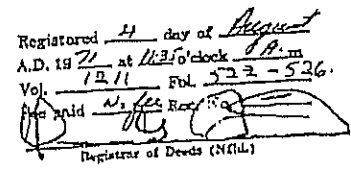 Registered 4 day of August
A.D. 19 71 at 11:35 o'clock A. m
Vol. 1211 Fol. 522 - 526.
Fee paid N. fee Rec
Registrar of Deeds (Nfld.)